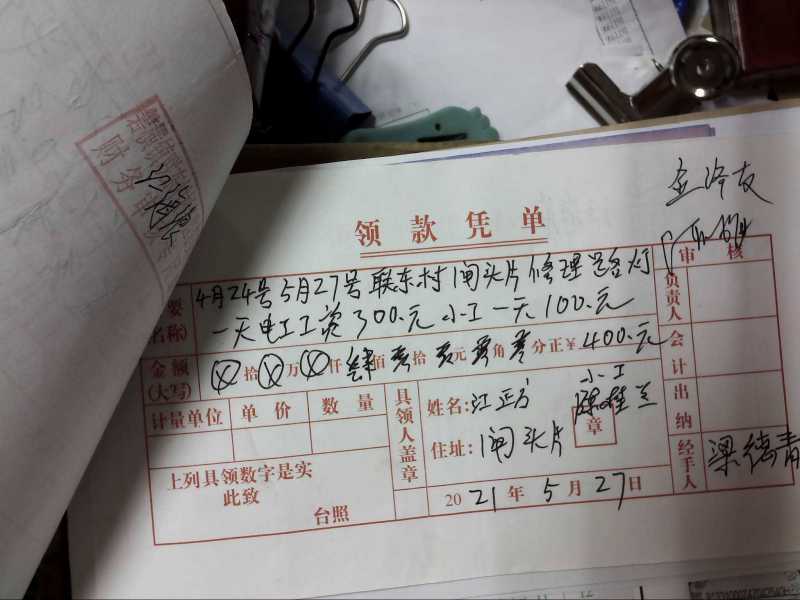 财务审
领款凭单
审核
要
(名称)
4月24号5月27号联东村闸头片修理路灯
一天电工工资300.元 小工一天100.元
金额
(大写)
拾 万 仟 肆 佰 零 拾 零 元 零 角 零 分正¥ 400.元
计量单位 单价 数量
上列具领数字是实
此致
台照
具领人盖章
姓名:江正方 小工
陈桂兰
章
住址:闸头片
2021年5月27日
负责人
会计
出纳
经手人 梁德青